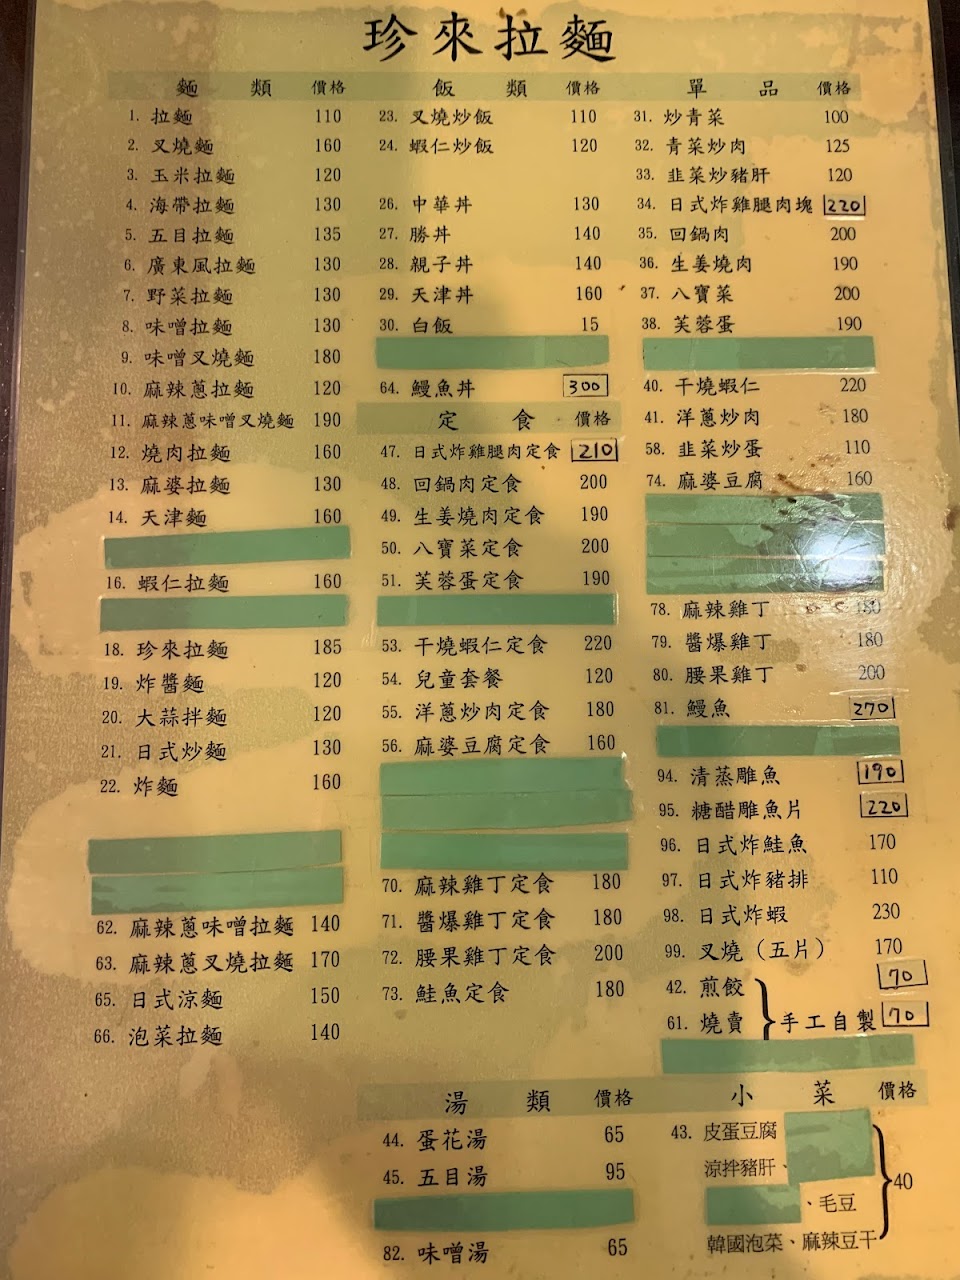 珍來拉麵
麵類 價格
1. 拉麵 110
2. 叉燒麵 160
3. 玉米拉麵 120
4. 海帶拉麵 130
5. 五目拉麵 135
6. 廣東風拉麵 130
7. 野菜拉麵 130
8. 味噌拉麵 130
9. 味噌叉燒麵 180
10. 麻辣蔥拉麵 120
11. 麻辣蔥味噌叉燒麵 190
12. 燒肉拉麵 160
13. 麻婆拉麵 130
14. 天津麵 160
16. 蝦仁拉麵 160
18. 珍來拉麵 185
19. 炸醬麵 120
20. 大蒜拌麵 120
21. 日式炒麵 130
22. 炸麵 160
62. 麻辣蔥味噌拉麵 140
63. 麻辣蔥叉燒拉麵 170
65. 日式涼麵 150
66. 泡菜拉麵 140
飯類 價格
23. 叉燒炒飯 110
24. 蝦仁炒飯 120
26. 中華丼 130
27. 勝丼 140
28. 親子丼 140
29. 天津丼 160
30. 白飯 15
64. 鰻魚丼 300
定食 價格
47. 日式炸雞腿肉定食 210
48. 回鍋肉定食 200
49. 生姜燒肉定食 190
50. 八寶菜定食 200
51. 芙蓉蛋定食 190
53. 干燒蝦仁定食 220
54. 兒童套餐 120
55. 洋蔥炒肉定食 180
56. 麻婆豆腐定食 160
70. 麻辣雞丁定食 180
71. 醬爆雞丁定食 180
72. 腰果雞丁定食 200
73. 鮭魚定食 180
湯類 價格
44. 蛋花湯 65
45. 五目湯 95
82. 味噌湯 65
單品 價格
31. 炒青菜 100
32. 青菜炒肉 125
33. 韭菜炒豬肝 120
34. 日式炸雞腿肉塊 220
35. 回鍋肉 200
36. 生姜燒肉 190
37. 八寶菜 200
38. 芙蓉蛋 190
40. 干燒蝦仁 220
41. 洋蔥炒肉 180
58. 韭菜炒蛋 110
74. 麻婆豆腐 160
78. 麻辣雞丁 180
79. 醬爆雞丁 180
80. 腰果雞丁 200
81. 鰻魚 270
94. 清蒸鵰魚 190
95. 糖醋鵰魚片 220
96. 日式炸鮭魚 170
97. 日式炸豬排 110
98. 日式炸蝦 230
99. 叉燒（五片） 170
42. 煎餃 70
61. 燒賣 手工自製 70
小菜 價格
43. 皮蛋豆腐
涼拌豬肝、
、毛豆 40
韓國泡菜、麻辣豆干